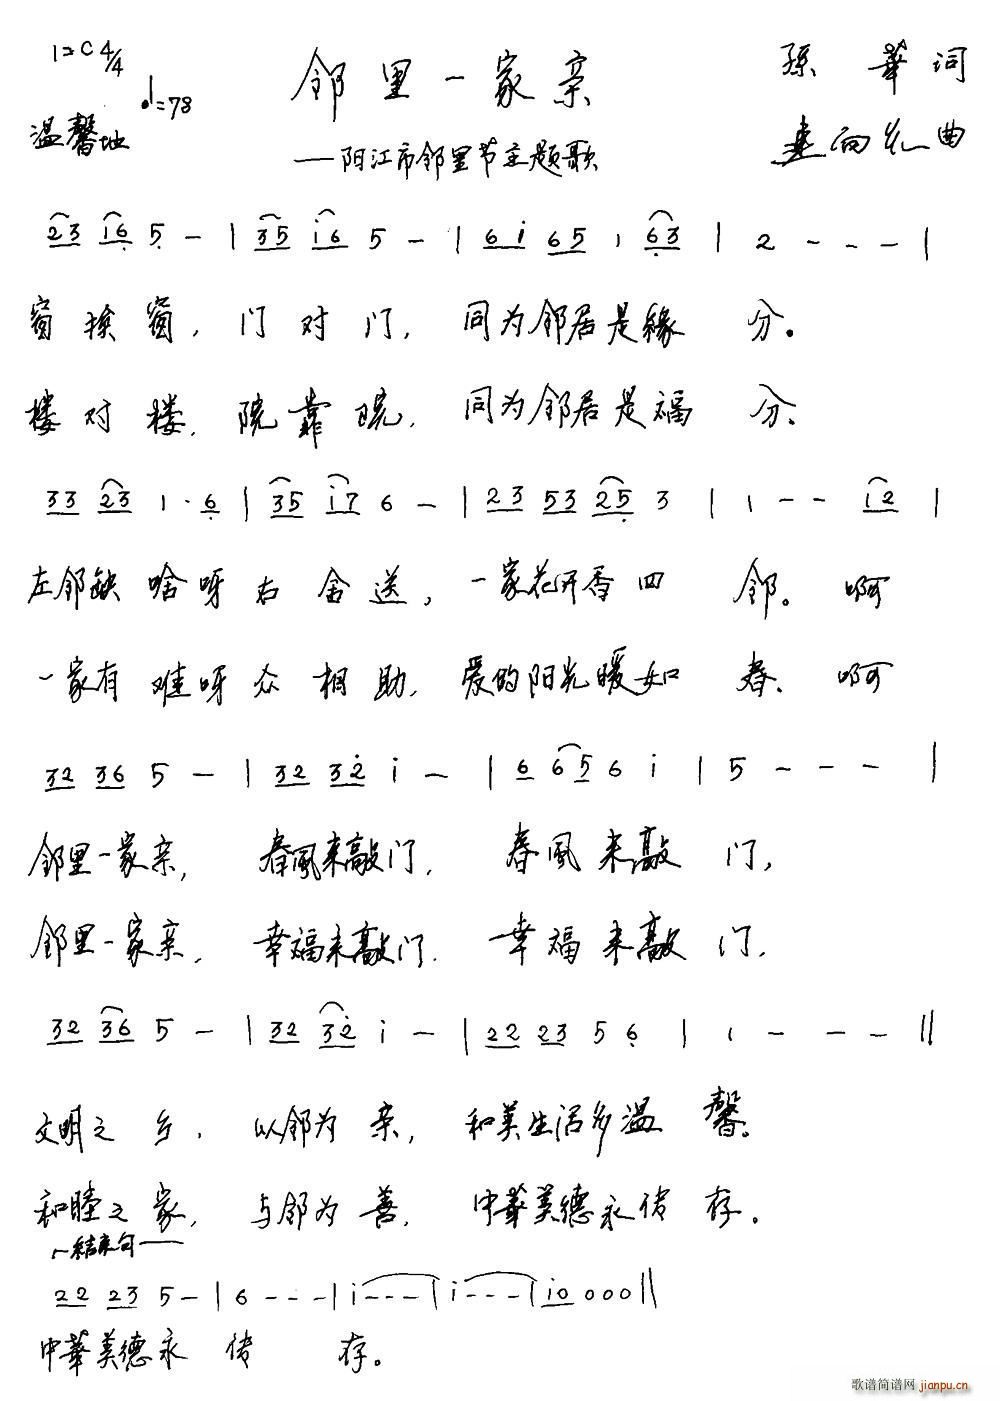 1=C 4/4
邻里一家亲
孫華词
♩=78
温馨地
——阳江市邻里节主题歌
向礼曲
23 i6 5 - | 35 i6 5 - | 6i 65 1 63 | 2 - - - |
窗挨窗，门对门，同为邻居是緣分。
楼对楼，院靠院，同为邻居是福分。
33 23 1· 6 | 35 i7 6 - | 23 53 25 3 | 1 - - i2 |
左邻缺啥呀右舍送，一家花开香四邻。啊
一家有难呀众相助，爱的阳光暖如春。啊
32 36 5 - | 32 32 i - | 6 65 6 i | 5 - - - |
邻里一家亲，春風来敲门，春風来敲门，
邻里一家亲，幸福来敲门，幸福来敲门，
32 36 5 - | 32 32 i - | 22 23 5 6 | 1 - - - ||
文明之乡，以邻为亲，和美生活多温馨。
和睦之家，与邻为善，中華美德永传存。
结束句
22 23 5 - | 6 - - - | i - - - | i - - - | i0 0 0 0 ||
中華美德永传存。
歌谱简谱网 jianpu.cn